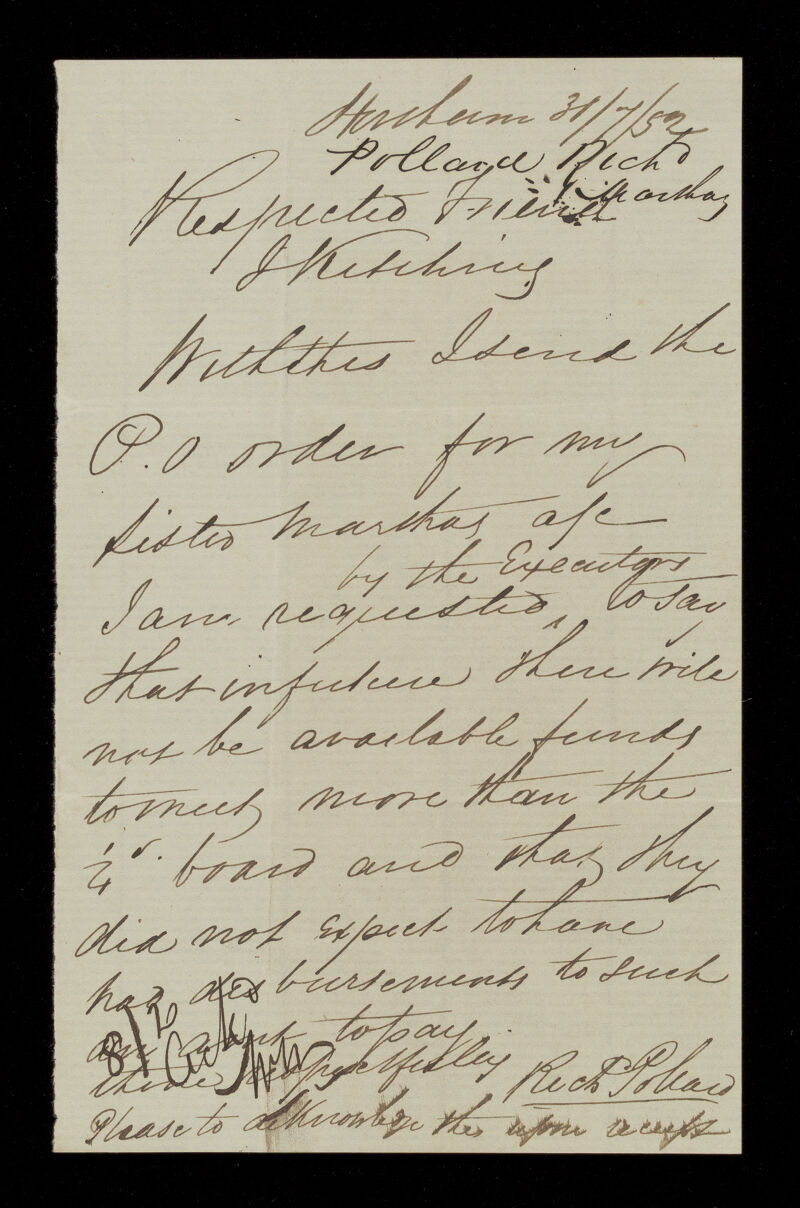 Horsham 31/7/52
Pollard Richd
Martha
Respected Friend
J Kitching
With this I send the
P.O order for my
sister Marthas a/c
by the Executors
I am requested ^ to say
that in future there will
not be available funds
to meet more than the
¼r board and that they
did not expect to have
had disbursements to such
an amt to pay
thine respectfully Richd Pollard
8/2 Ackd
Please to acknowledge the upon receipt